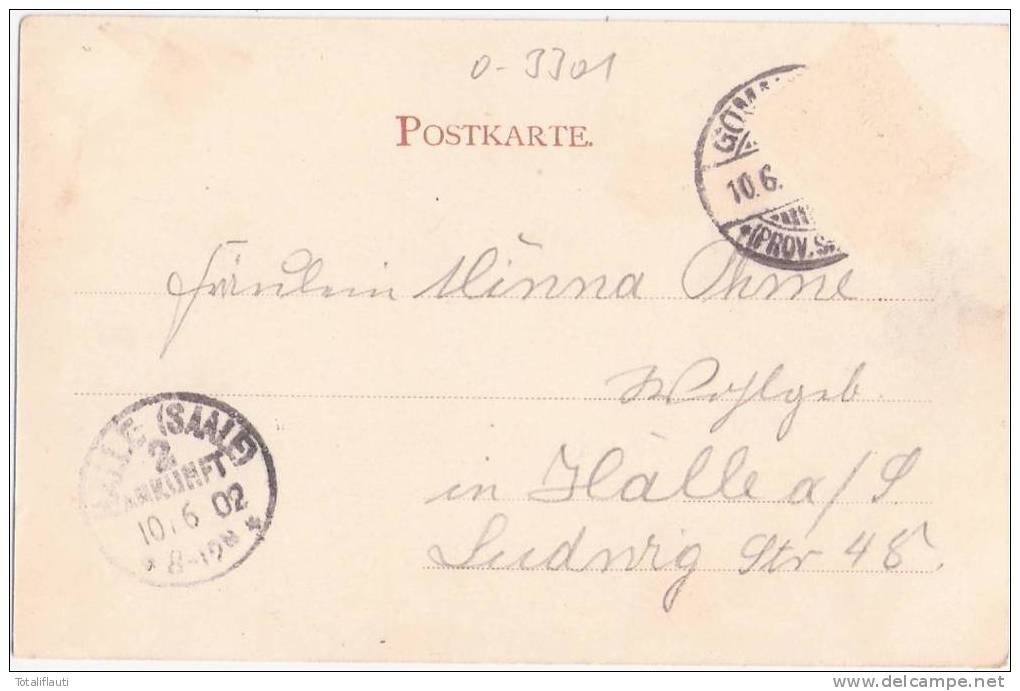 0-3301
POSTKARTE.
GOM
10.6.
*(PROV. S.
Fräulein Minna Ohme
Wohlgeb
in Halle a/S
Ludwig Str 48
HALLE (SAALE)
2
ANKUNFT
10.6 02
* 8-12N *
Totaliflauti
www.delcampe.net